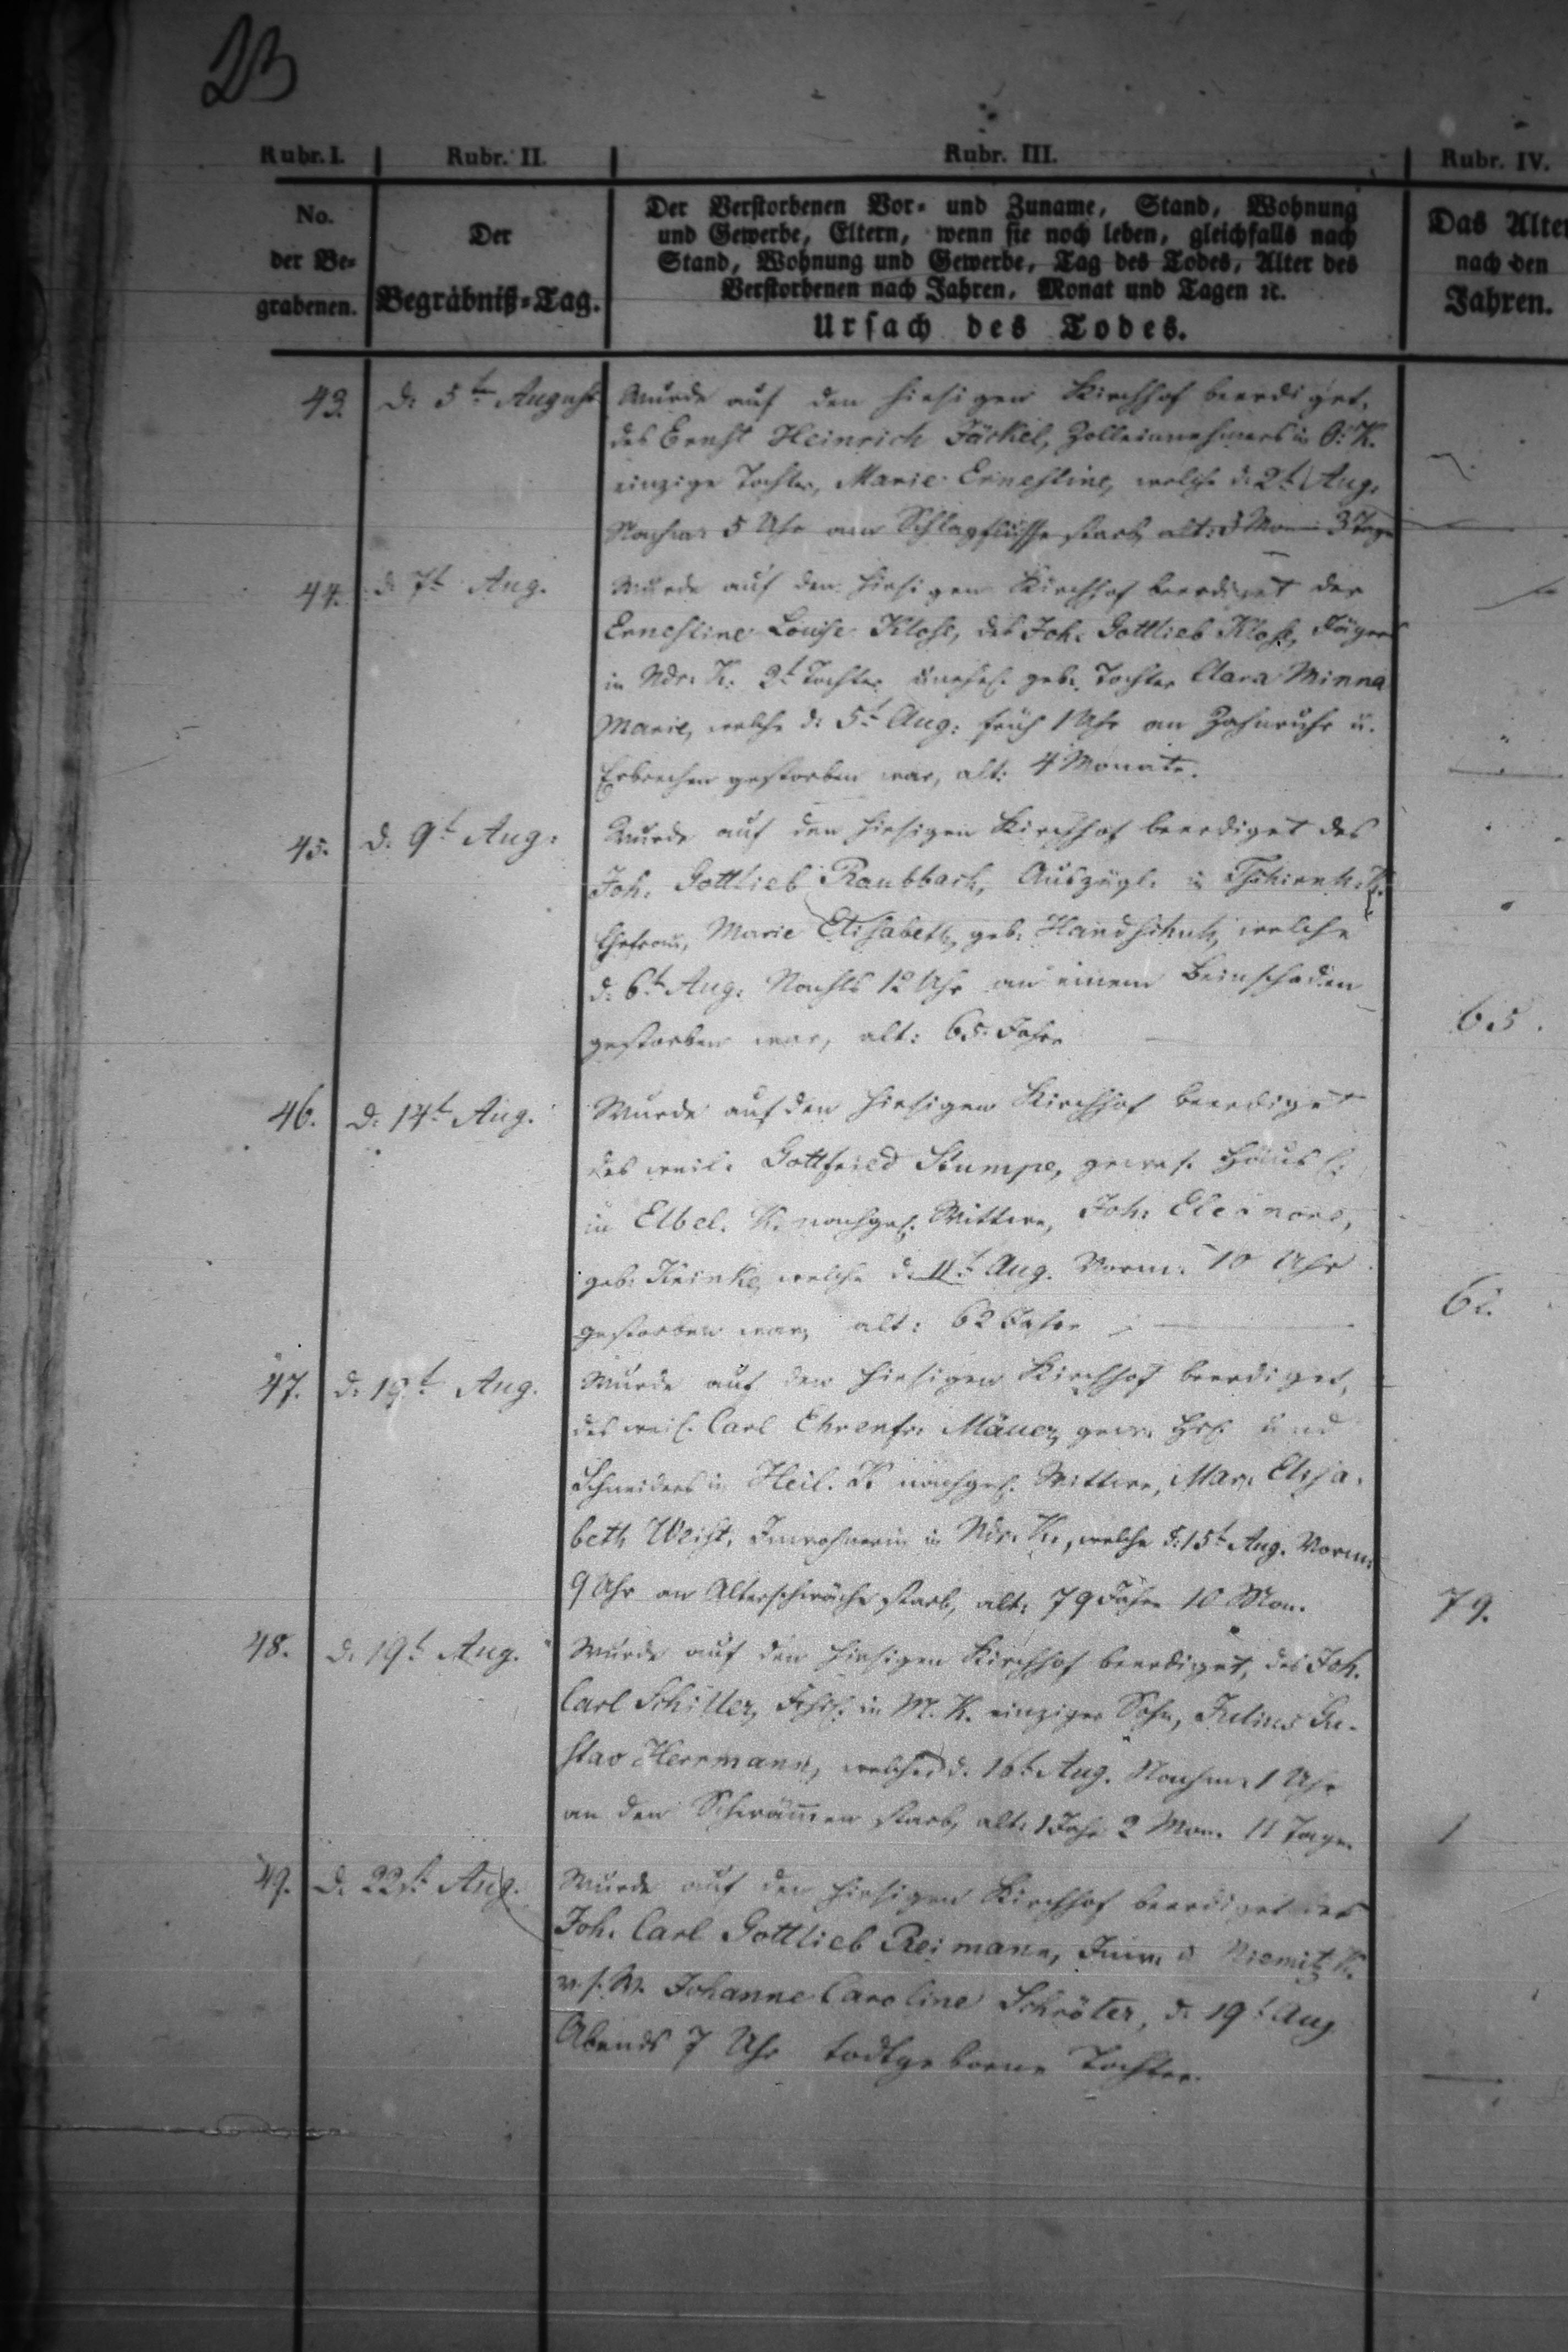 23
Rubr. I. Rubr. II. Rubr. III. Rubr. IV.
No. der Be-grabenen.
Der Begräbniß-Tag.
Der Verstorbenen Vor- und Zuname, Stand, Wohnung
und Gewerbe, Eltern, wenn sie noch leben, gleichfalls nach
Stand, Wohnung und Gewerbe, Tag des Todes, Alter des
Verstorbenen nach Jahren, Monat und Tagen ꝛc.
Ursach des Todes.
Das Alter
nach den
Jahren.
43. d. 5t August Wurde auf den hiesigen Kirchhof beerdiget,
des Ernst Heinrich Jäckel, Zolleinnehmers in O. K.
einzige Tochter, Marie Ernestine, welche d. 2t Aug.
Nachm. 5 Uhr am Schlagflusse starb, alt: Mon 3 Tage
44. d. 7t Aug. Wurde auf den hiesigen Kirchhof beerdiget der
Ernestine Louise Klose, des Joh. Gottlieb Klose, Jägers
in Ndr. K. 2t Tochter unehel. geb. Tochter Clara Minna
Marie, welche d. 5t Aug. früh 1 Uhr an Zahnruhr u.
Erbrechen gestorben war, alt: 4 Monate.
45. d. 9t Aug. Wurde auf den hiesigen Kirchhof beerdiget des
Joh. Gottlieb Raubbach, Auszügl. in K.
Ehefrau, Marie Elisabeth, geb. Handschuh, welche
d. 6t Aug. Nachts 12 Uhr an einem Beinschaden
gestorben war, alt: 65. Jahre 65.
46. d. 14t Aug. Wurde auf den hiesigen Kirchhof beerdiget
des weil. Gottfried Stumpe, gewes. Häusl.
in Elbel. K. nachgel. Wittwe, Joh. Eleonore,
geb. welche d. 11t Aug. Vorm. 10 Uhr
gestorben war, alt: 62 Jahre 62.
47. d. 19t Aug. Wurde auf den hiesigen Kirchhof beerdiget,
des weil. Carl Ehrenfr. Mäuer, gew. Hsl. und
Schneiders in Heil. K nachgel. Wittwe, Mar. Elisa-
beth Weist, Inwohnerin in Ndr. K., welche d. 15t Aug. Vorm.
9 Uhr an Altersschwäche starb, alt: 79 Jahre 10 Mon. 79.
48. d. 19t Aug. Wurde auf den hiesigen Kirchhof beerdiget, des Joh.
Carl Schiller, in M. K. einziger Sohn, Julius Gu-
stav Herrmann, welcher d. 16t Aug. Nachm. 1 Uhr
an den Schwämmen starb, alt: 1 Jahr 2 Mon. 11 Tage. 1
49. d. 22st Aug. Wurde auf den hiesigen Kirchhof beerdiget des
Joh. Carl Gottlieb Reimann, Inw. in Niemitz K.
v. s. W. Johanne Caroline Schröter, d. 19t Aug
Abends 7 Uhr todtgeborne Tochter.